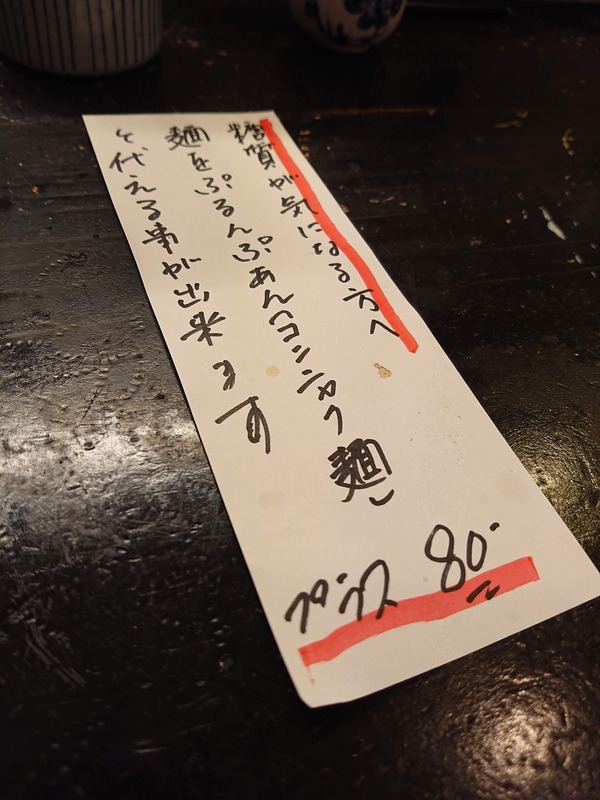 糖質が気になる方へ
麺をぷるんぷあん(コンニャク麺)
と代える事が出来ます
プラス 80-